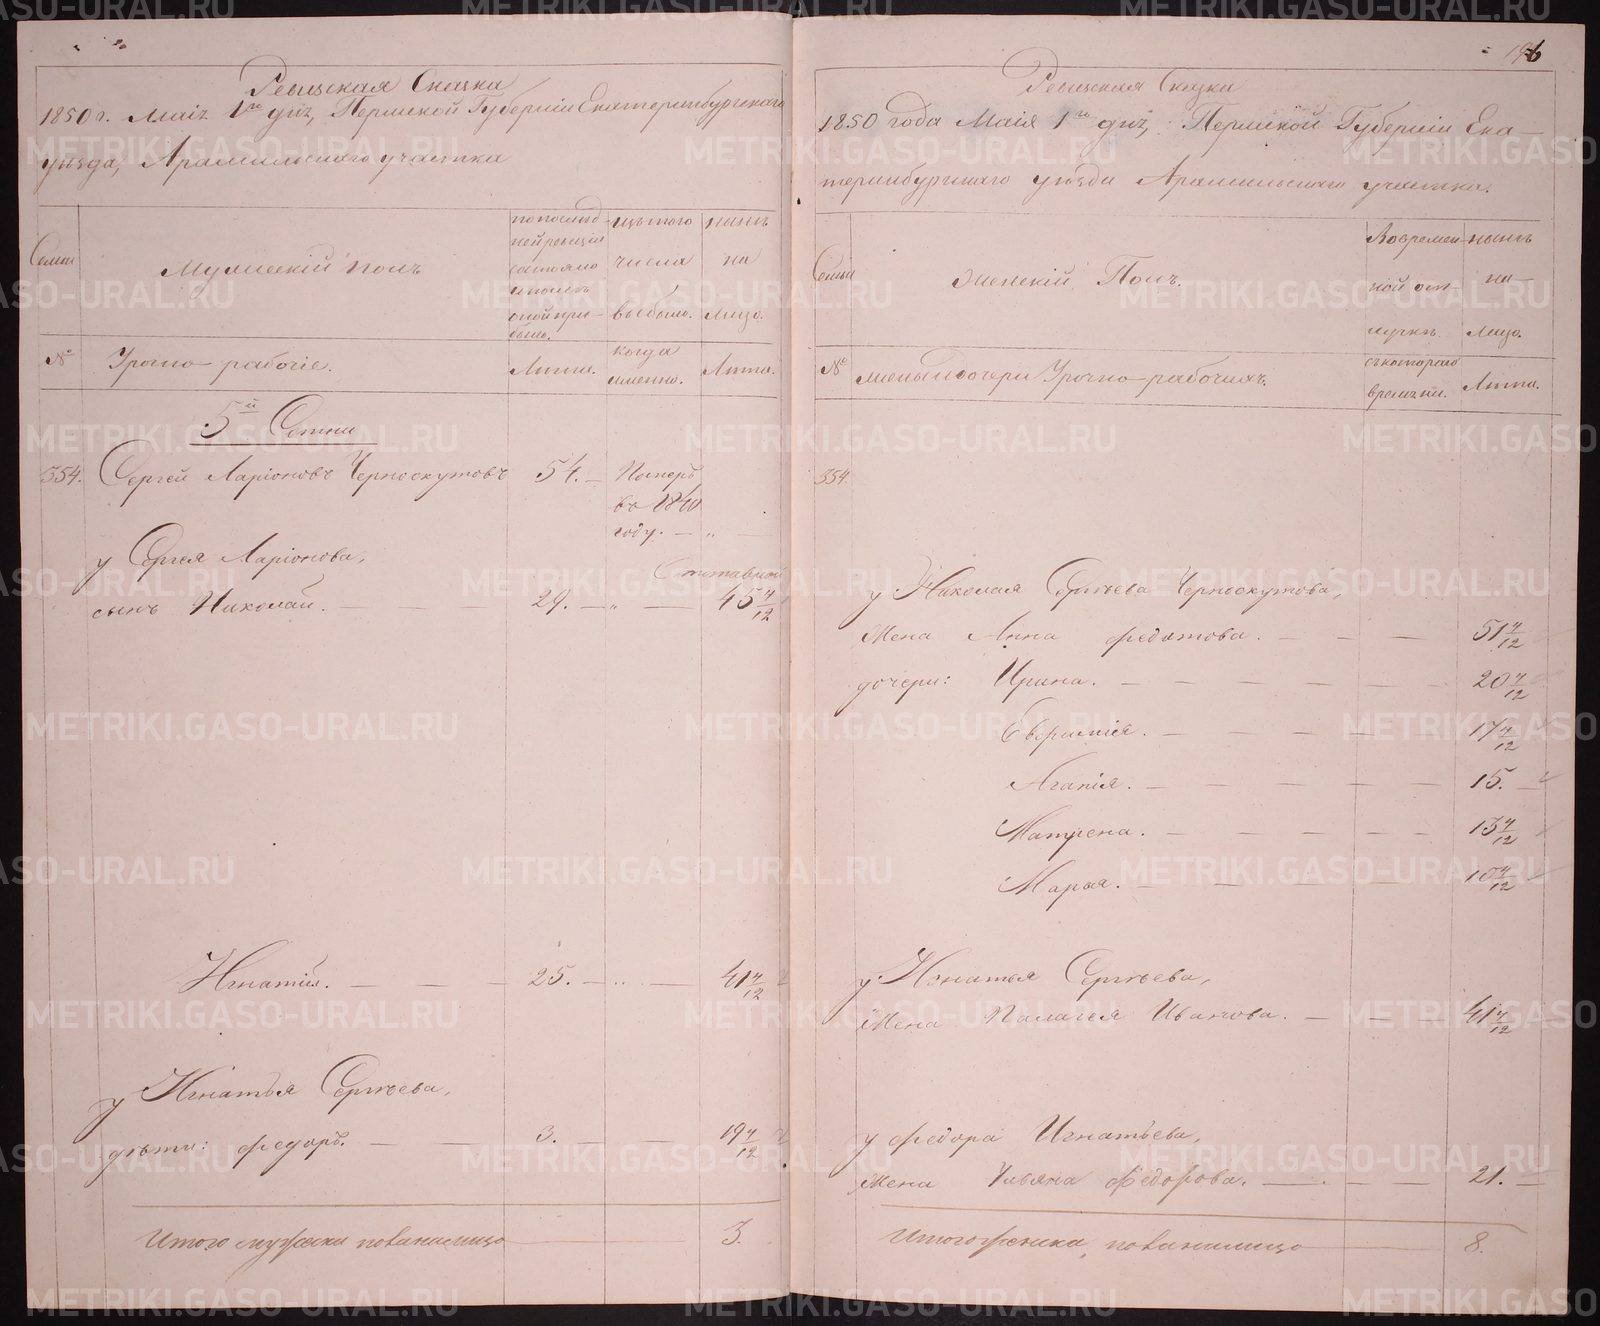 Ревизская Сказка
1850 г. Маiя 1го дня, Пермской Губернiи Екатеринбургскаго
уѣзда, Арамильскаго участка
Семьи
Мужескiй полъ
по послѣд-
ней ревизiи
состояло
и послѣ
оной при-
было.
изъ того
числа
выбыло.
нынѣ
на
лицо.
№
Урочно-рабочiе.
Лѣта.
когда
именно.
Лѣта.
5й Сотни
354.
Сергей Ларiоновъ Черноскутовъ
54.
Померъ
въ 1840
году.
у Сергея Ларiонова,
сынъ Николай.
29.
Отставной
45 4/12
Игнатiй.
25.
41 4/12
у Игнатья Сергѣева,
дѣти: Федоръ.
3.
19 4/12
Итого мужеска пола на лицо
3.
196
Ревизская Сказка
1850 года Маiя 1го дня, Пермской Губернiи Ека-
теринбургскаго уѣзда Арамильскаго участка.
Семьи
Женскiй Полъ.
Во времен-
ной от-
лучкѣ.
нынѣ
на-
лицо.
№
жены и дочери Урочно-рабочихъ.
съ котораго
времѣни.
Лѣта.
354.
у Николая Сергѣева Черноскутова,
Жена Анна Федотова.
51 4/12
дочери: Ирина.
20 4/12
Евфимiя.
17 4/12
Агапiя.
15.
Матрена.
13 4/12
Марья.
10 4/12
у Игнатья Сергѣева,
Жена Палагея Иванова.
41 4/12
у Федора Игнатьева,
Жена Ульяна Федорова.
21.
Итого женска пола на лицо
8.
METRIKI.GASO-URAL.RU